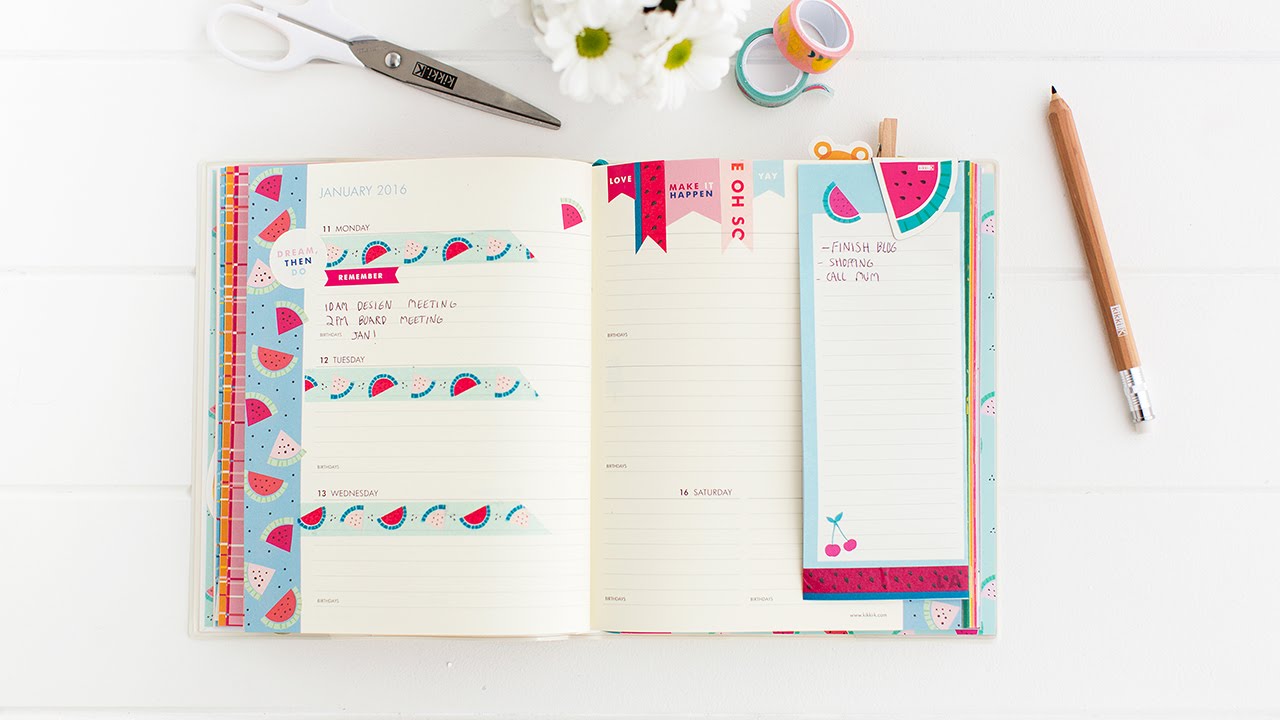 kikki.K
JANUARY 2016
11 MONDAY
DREAM,
THEN
DO
REMEMBER
10AM DESIGN MEETING
2PM BOARD MEETING
BIRTHDAYS JAN!
12 TUESDAY
BIRTHDAYS
13 WEDNESDAY
BIRTHDAYS
LOVE
MAKE IT
HAPPEN
E OH SO
YAY
BIRTHDAYS
BIRTHDAYS
16 SATURDAY
BIRTHDAYS
BIRTHDAYS
www.kikki-k.com
- FINISH BLOG
- SHOPPING
- CALL MUM
kikki.K